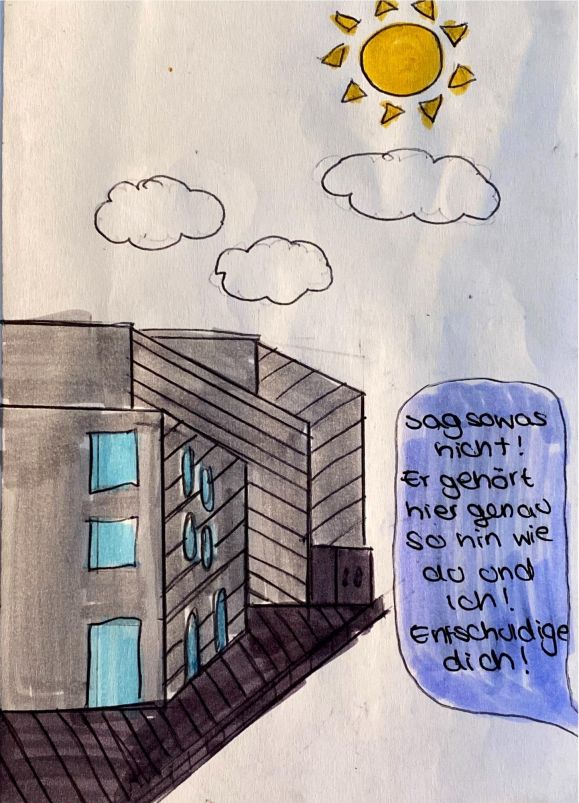 sag sowas
nicht!
Er gehört
hier genau
so hin wie
du und
ich!
Entschudige
dich!